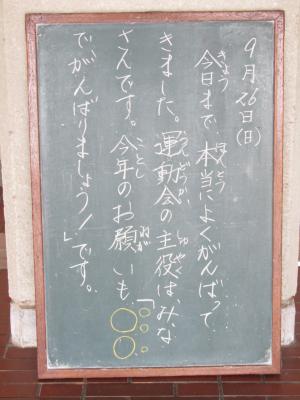 9月26日(日)
今日まで、本当によくがんばって
きました。運動会の主役は、みな
さんです。今年のお願いも、「○○○
で、がんばりましょう！」です。